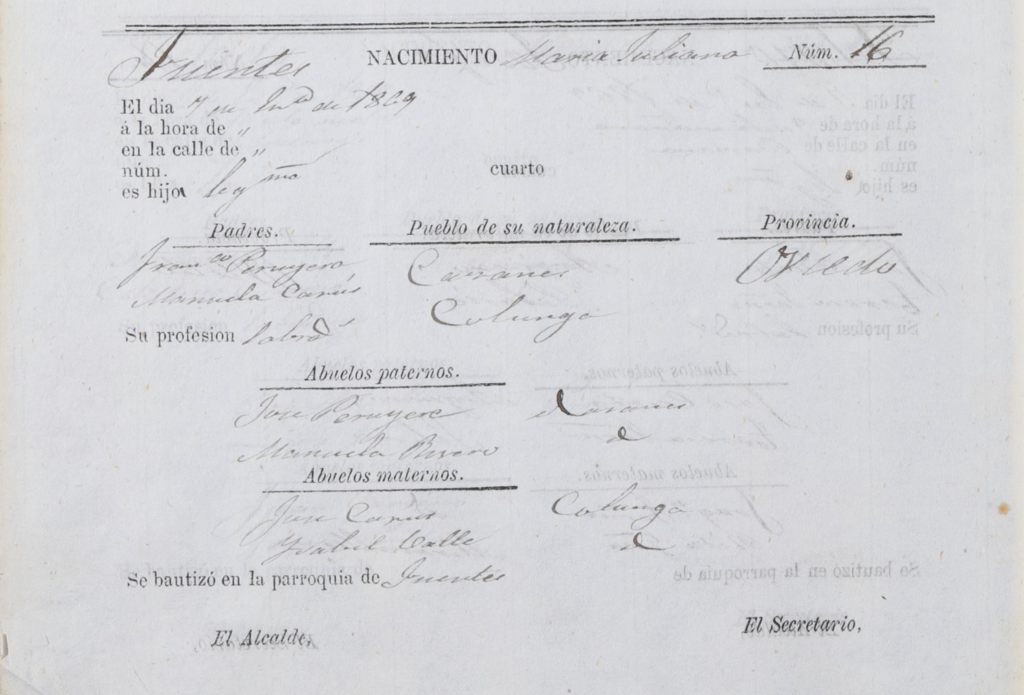 Fuentes NACIMIENTO Maria Juliana Núm. 16
El dia 7 de de 1869
á la hora de „
en la calle de „
núm. cuarto
es hija legma
Padres. Pueblo de su naturaleza. Provincia.
Franco Peruyero Carranes Oviedo
Manuela Carus Colunga
Su profesion labrs
Abuelos paternos.
Jose Peruyero Carranes
Manuela Rivero d
Abuelos maternos.
Jose Carus Colunga
Ysabel Valle d
Se bautizó en la parroquia de Fuentes
El Alcalde, El Secretario,